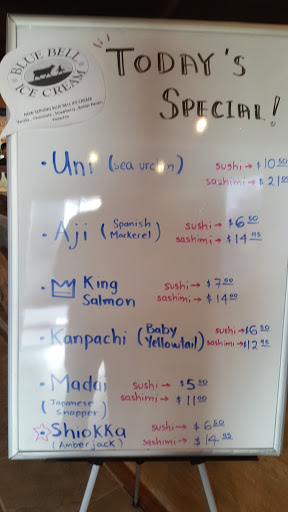 BLUE BELL
ICE CREAM
NOW SERVING BLUE BELL ICE CREAM
TODAY's
SPECIAL!
• Uni (sea urchin) sushi → $10.50
sashimi → $21.00
• Aji (Spanish Mackerel) sushi → $6.50
sashimi → $14.95
King Salmon sushi → $7.00
sashimi → $14.00
• Kanpachi (Baby Yellowtail) sushi → $6.50
sashimi → $12.95
• Madai sushi → $5.50
(Japanese Snapper) sashimi → $11.00
• Shiokka sushi → $6.50
(Amberjack) sashimi → $14.95